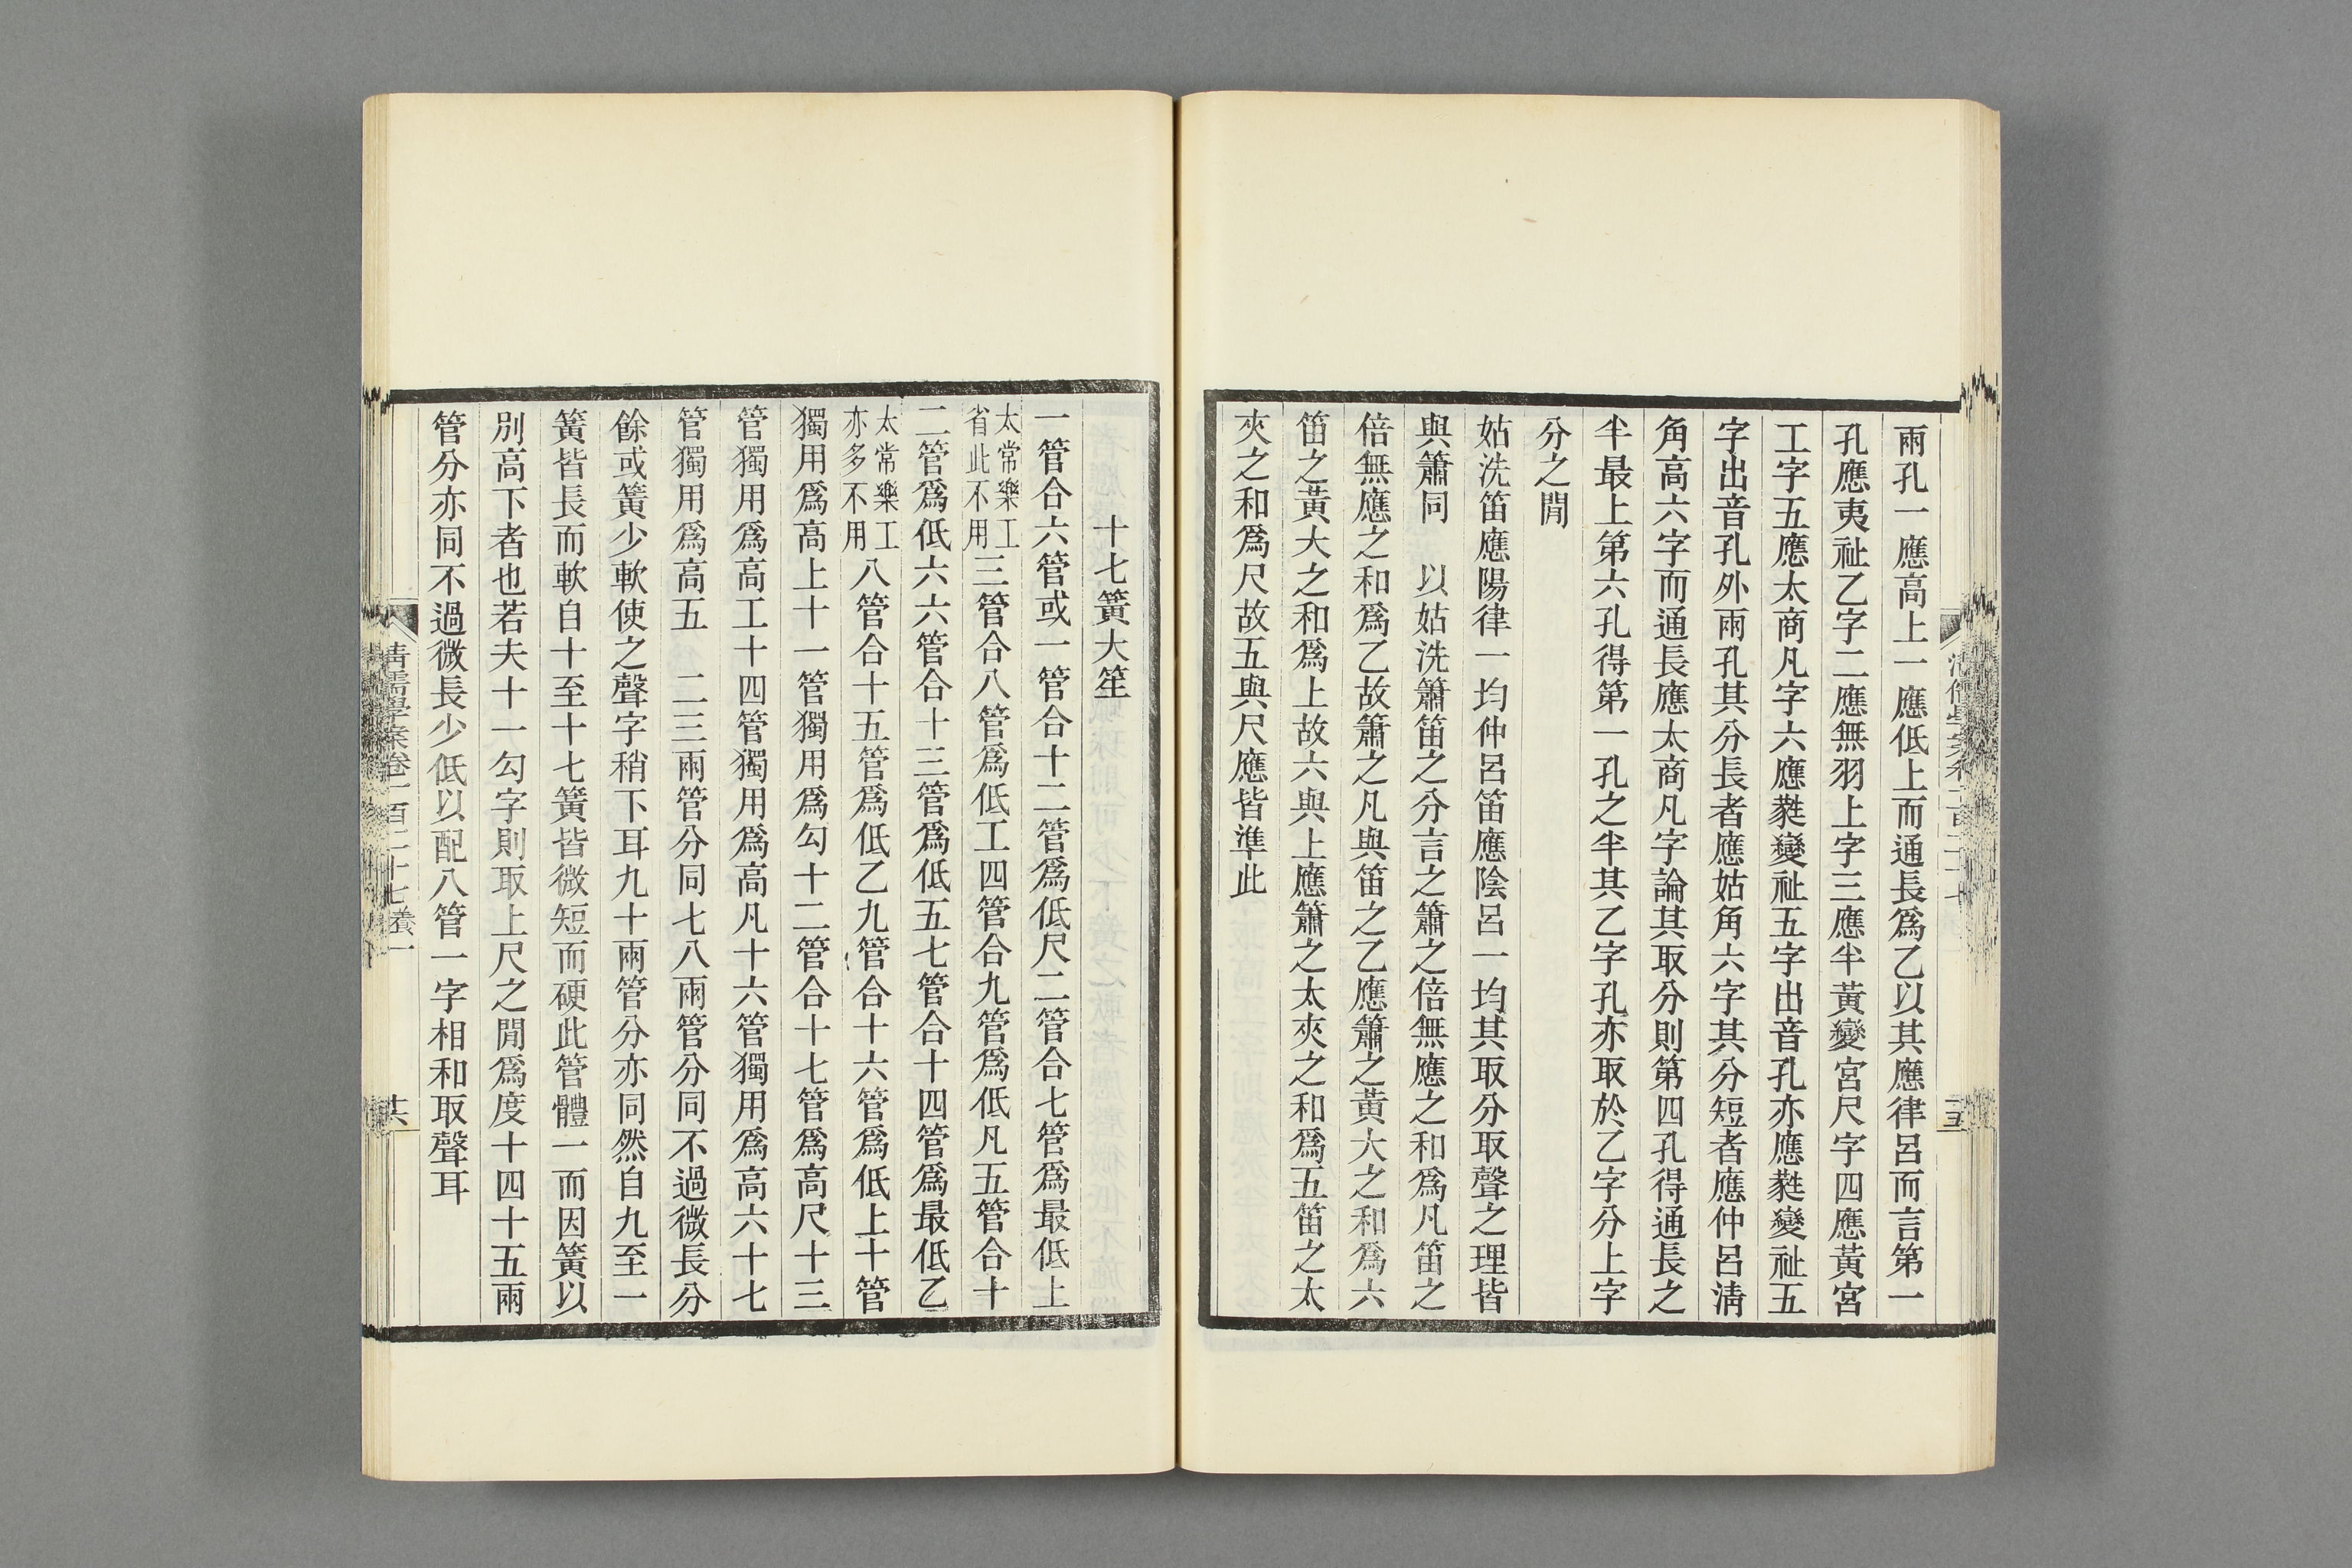 兩孔一應高上一應低上而通長爲乙以其應律呂而言第一
孔應夷祉乙字二應無羽上字三應半黃變宮尺字四應黃宮
工字五應太商凡字六應蕤變祉五字出音孔亦應蕤變祉五
字出音孔外兩孔其分長者應姑角六字其分短者應仲呂淸
角高六字而通長應太商凡字論其取分則第四孔得通長之
半最上第六孔得第一孔之半其乙字孔亦取於乙字分上字
分之閒
姑洗笛應陽律一均仲呂笛應陰呂一均其取分取聲之理皆
與簫同　以姑洗簫笛之分言之簫之倍無應之和爲凡笛之
倍無應之和爲乙故簫之凡與笛之乙應簫之黃大之和爲六
笛之黃大之和爲上故六與上應簫之太夾之和爲五笛之太
夾之和爲尺故五與尺應皆準此
十七簧大笙
一管合六管或一管合十二管爲低尺二管合七管爲最低上
太常樂工
省此不用
三管合八管爲低工四管合九管爲低凡五管合十
二管爲低六六管合十三管爲低五七管合十四管爲最低乙
太常樂工
亦多不用
八管合十五管爲低乙九管合十六管爲低上十管
獨用爲高上十一管獨用爲勾十二管合十七管爲高尺十三
管獨用爲高工十四管獨用爲高凡十六管獨用爲高六十七
管獨用爲高五　二三兩管分同七八兩管分同不過微長分
餘或簧少軟使之聲字稍下耳九十兩管分亦同然自九至一
簧皆長而軟自十至十七簧皆微短而硬此管體一而因簧以
別高下者也若夫十一勾字則取上尺之閒爲度十四十五兩
管分亦同不過微長少低以配八管一字相和取聲耳
清儒學案卷一百二十七　養一
十六